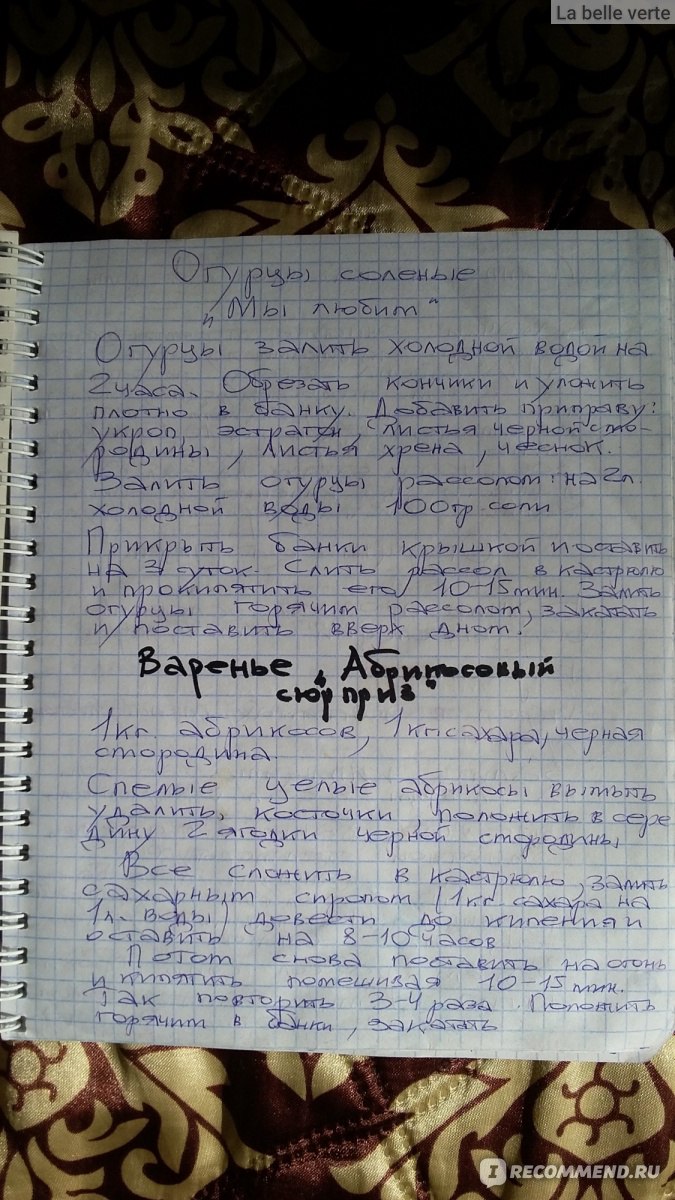 La belle verte
Огурцы соленые
„Мы любим"
Огурцы залить холодной водой на
2 часа. Обрезать кончики и уложить
плотно в банку. Добавить приправу:
укроп, эстрагон, листья черной смо-
родины, листья хрена, чеснок.
Залить огурцы рассолом: на 2л.
холодной воды 100гр соли
Прикрыть банки крышкой и поставить
на 3 суток. Слить рассол в кастрюлю
и прокипятить его 10-15 мин. Залить
огурцы горячим рассолом, закатать
и поставить вверх дном.
Варенье „Абрикосовый
сюрприз"
1кг. абрикосов, 1кг. сахара, черная
смородина.
Спелые целые абрикосы вымыть
удалить, косточки, положить в сере
дину 2 ягодки черной смородины
Все сложить в кастрюлю, залить
сахарным сиропом (1кг. сахара на
1л. воды) довести до кипения и
оставить на 8-10 часов
Потом снова поставить на огонь
и кипятить помешивая 10-15 мин.
Так повторить 3-4 раза. Положить
горячим в банки, закатать
IRECOMMEND.RU